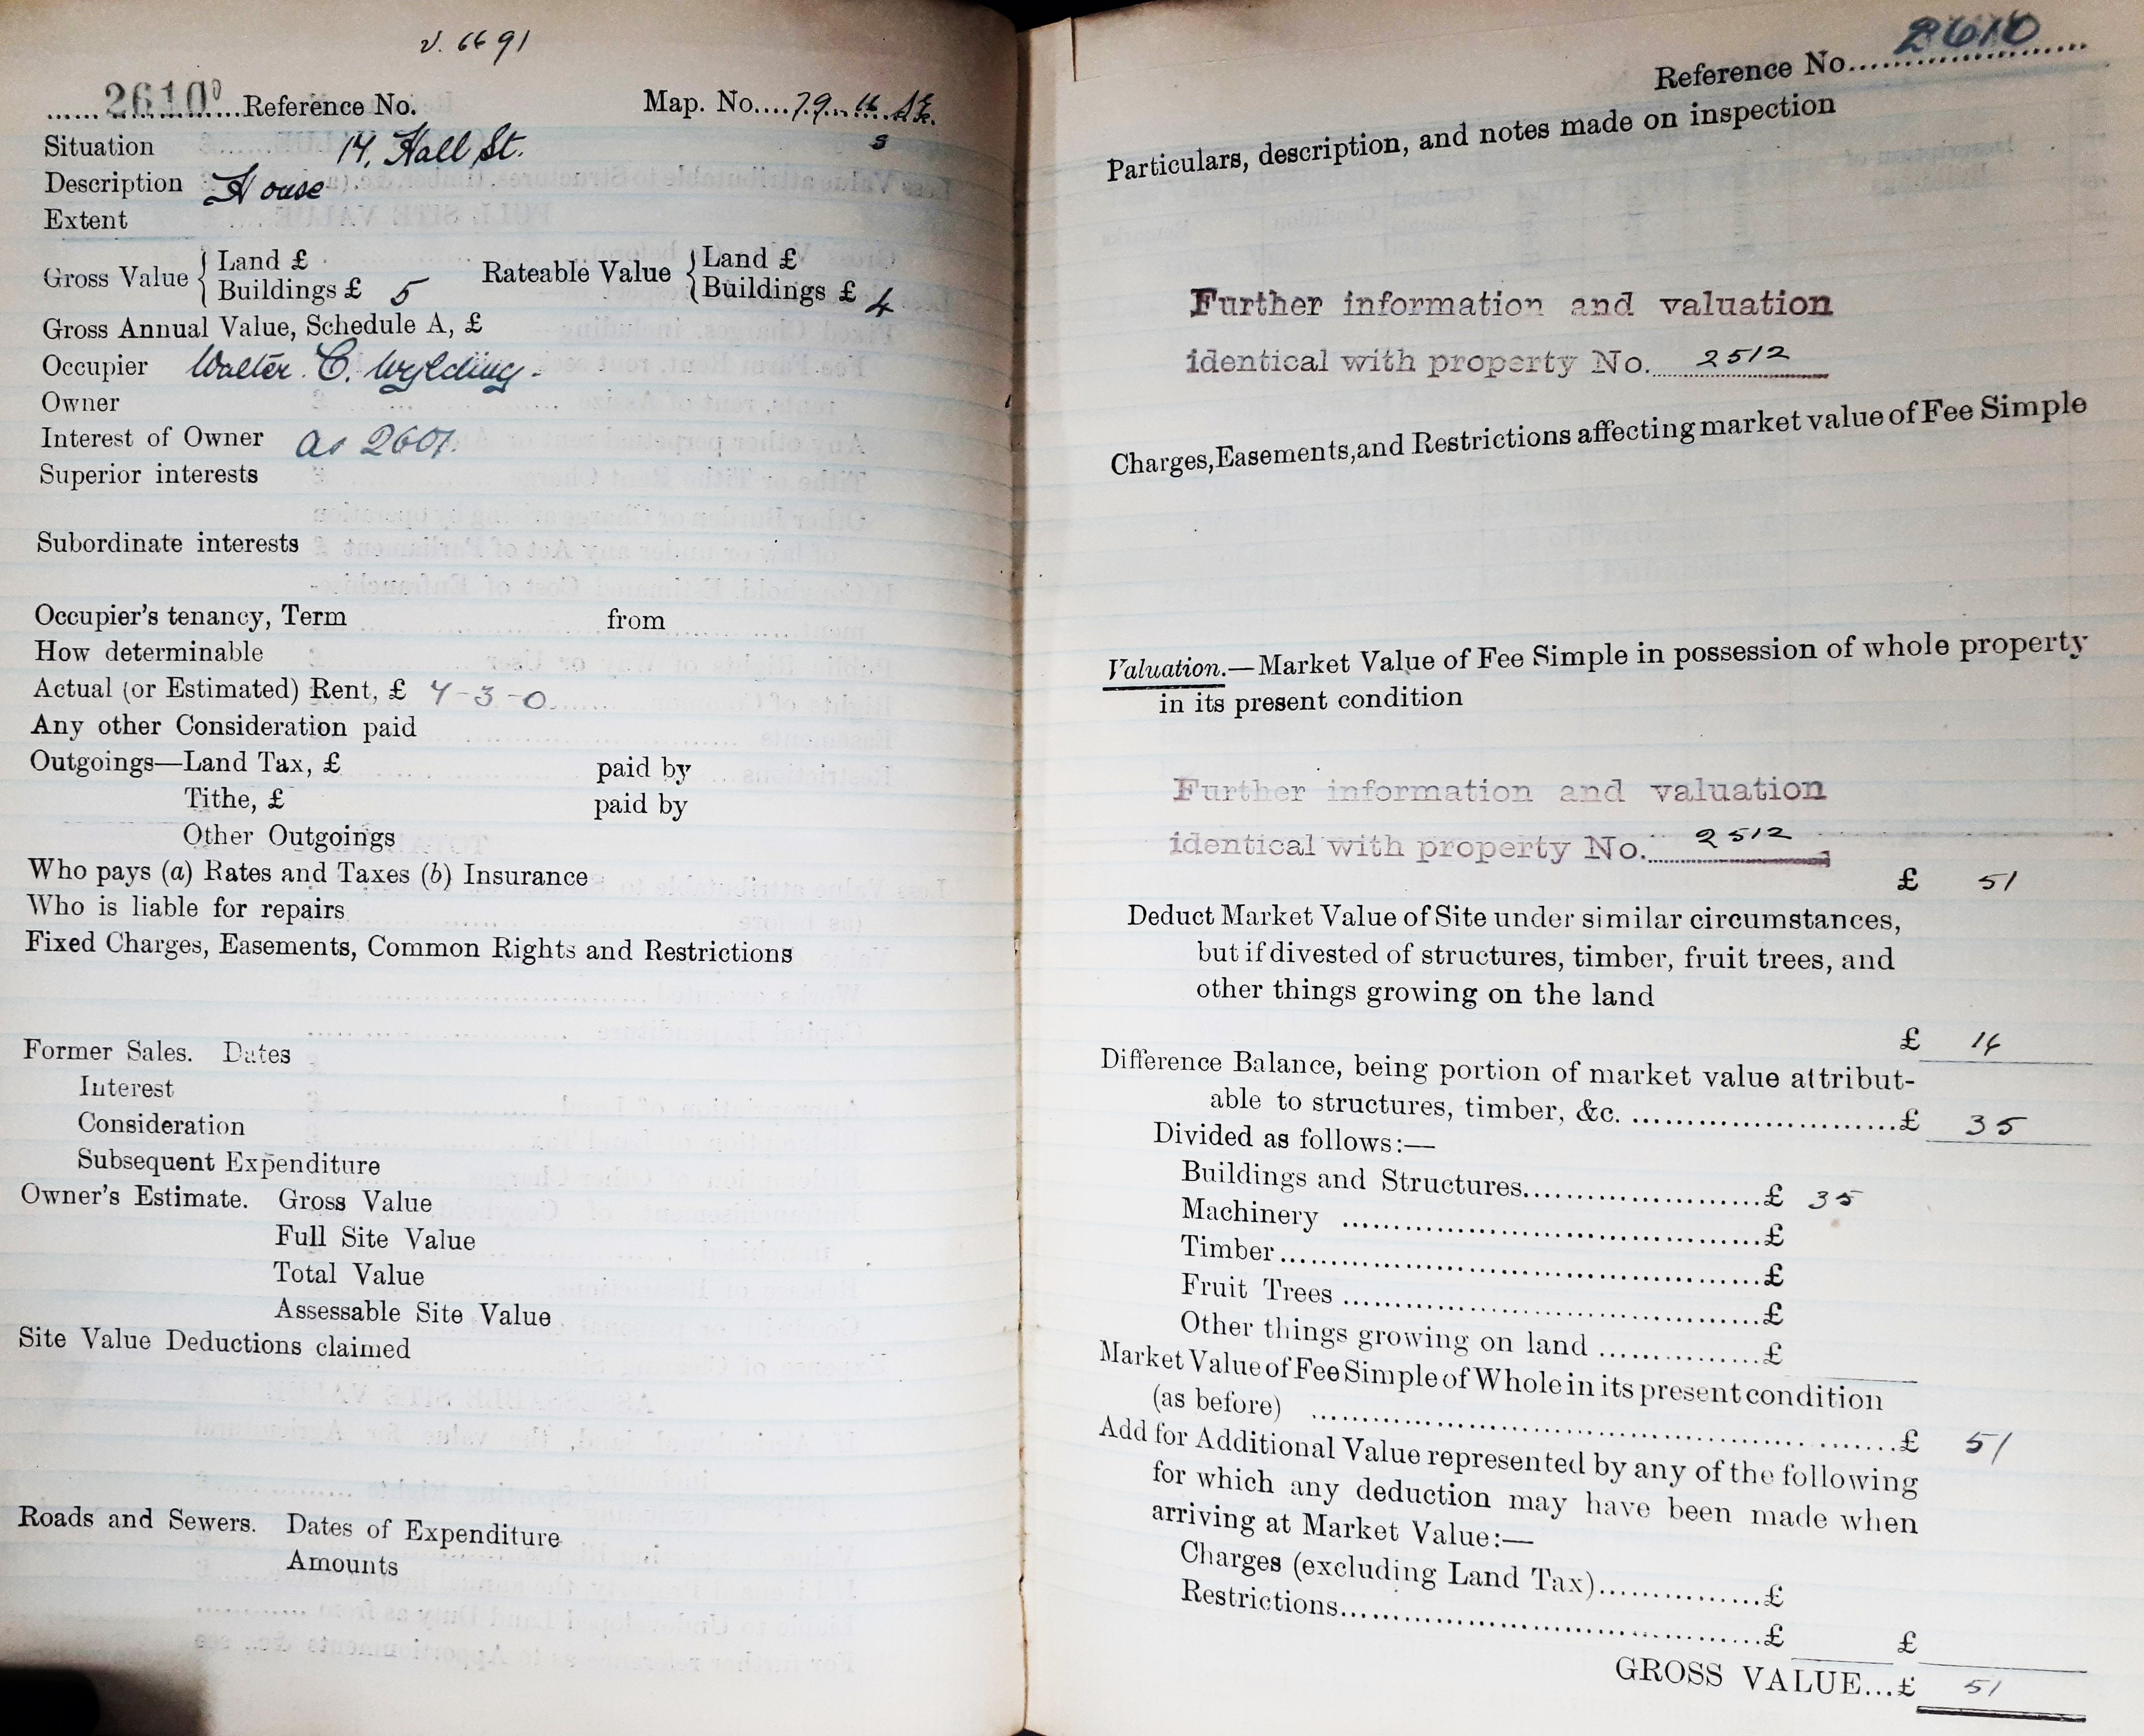 v. 6691
2610 Reference No. Map. No.... 79. 16 S.E.
Situation 14, Hall St. s
Description House
Extent
Gross Value { Land £ Rateable Value { Land £
Buildings £ 5 Buildings £ 4
Gross Annual Value, Schedule A, £
Occupier Walter C. Wylding.
Owner
Interest of Owner as 2601.
Superior interests
Subordinate interests
Occupier's tenancy, Term from
How determinable
Actual (or Estimated) Rent, £ 4-3-0
Any other Consideration paid
Outgoings—Land Tax, £ paid by
Tithe, £ paid by
Other Outgoings
Who pays (a) Rates and Taxes (b) Insurance
Who is liable for repairs
Fixed Charges, Easements, Common Rights and Restrictions
Former Sales. Dates
Interest
Consideration
Subsequent Expenditure
Owner's Estimate. Gross Value
Full Site Value
Total Value
Assessable Site Value
Site Value Deductions claimed
Roads and Sewers. Dates of Expenditure
Amounts
Reference No. 2610
Particulars, description, and notes made on inspection
Further information and valuation
identical with property No. 2512
Charges, Easements, and Restrictions affecting market value of Fee Simple
Valuation.—Market Value of Fee Simple in possession of whole property
in its present condition
Further information and valuation
identical with property No. 2512
£ 51
Deduct Market Value of Site under similar circumstances,
but if divested of structures, timber, fruit trees, and
other things growing on the land
£ 16
Difference Balance, being portion of market value attribut-
able to structures, timber, &c. £ 35
Divided as follows:—
Buildings and Structures £ 35
Machinery £
Timber £
Fruit Trees £
Other things growing on land £
Market Value of Fee Simple of Whole in its present condition
(as before) £ 51
Add for Additional Value represented by any of the following
for which any deduction may have been made when
arriving at Market Value:—
Charges (excluding Land Tax) £
Restrictions £ £
GROSS VALUE...£ 51